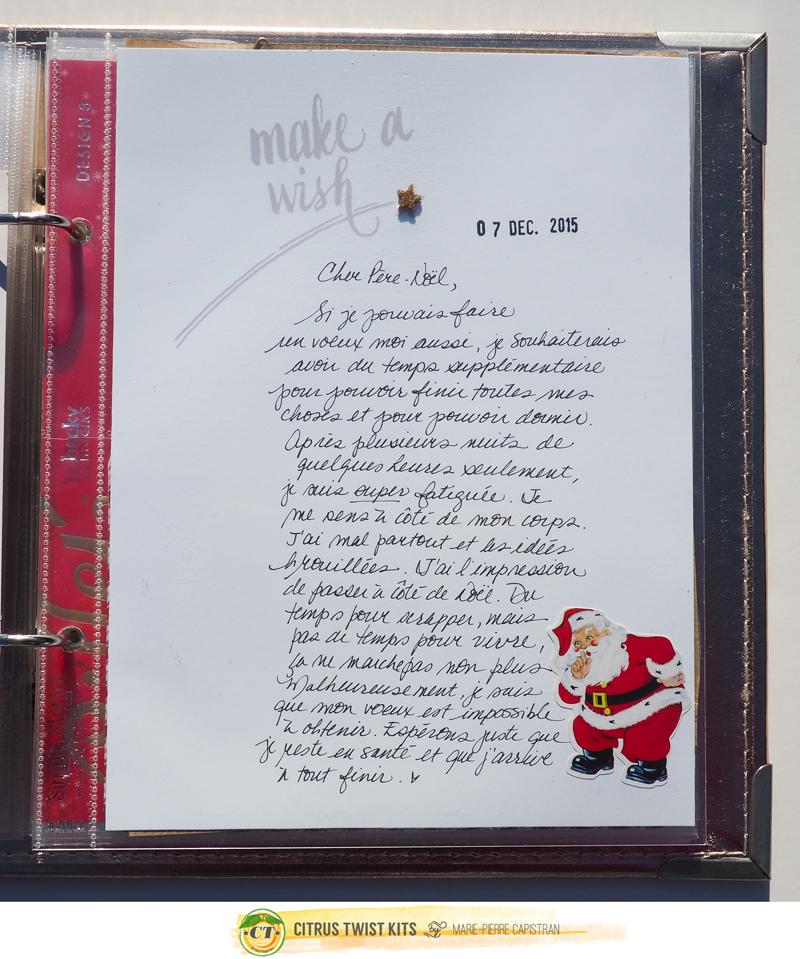 make a
wish
DESIGN 3
07 DEC. 2015
Cher Père-Noël,
Si je pouvais faire
un voeux moi aussi, je souhaiterais
avoir du temps supplémentaire
pour pouvoir finir toutes mes
choses et pour pouvoir dormir.
Après plusieurs nuits de
quelques heures seulement,
je suis super fatiguée. Je
me sens à côté de mon corps.
J'ai mal partout et les idées
brouillées. J'ai l'impression
de passer à côté de Noël. Du
temps pour scrapper, mais
pas de temps pour vivre,
ça ne marche pas non plus
Malheureusement, je sais
que mon voeux est impossible
à obtenir. Espérons juste que
je reste en santé et que j'arrive
à tout finir.
CT
CITRUS TWIST KITS by MARIE-PIERRE CAPISTRAN